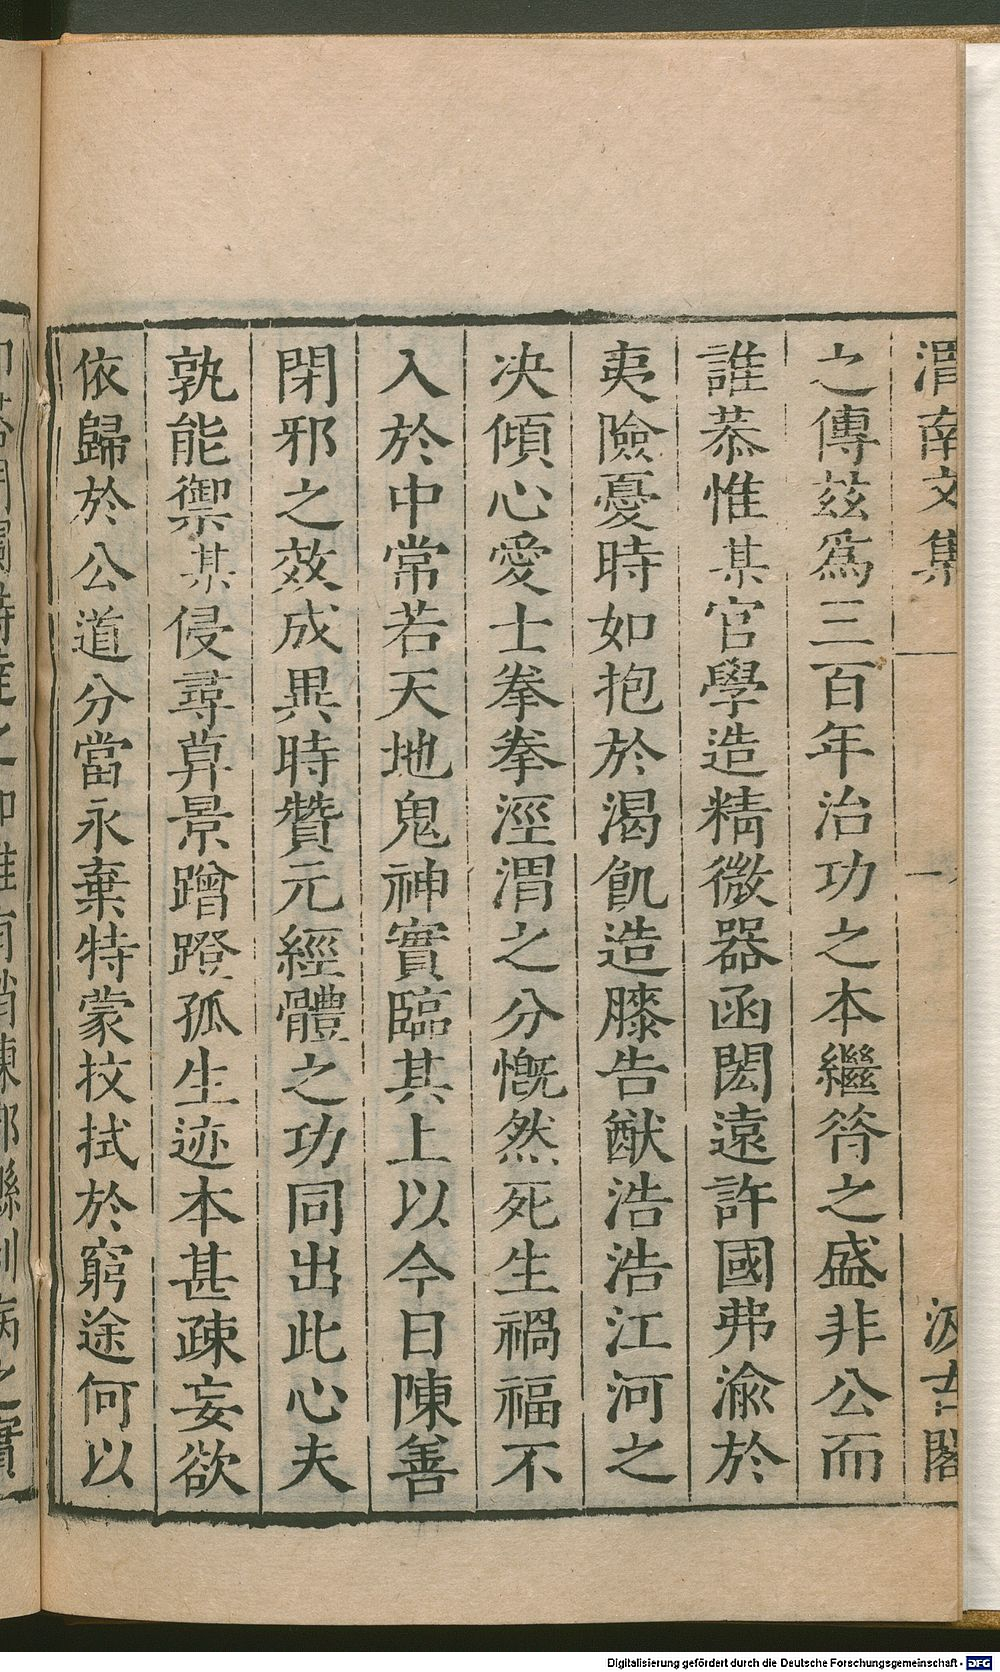 渭南文集 一 汲古閣
之傳兹爲三百年治功之本繼符之盛非公而
誰恭惟某官學造精微器函閎遠許國弗渝於
夷險憂時如抱於渴飢造膝告猷浩浩江河之
决傾心愛士拳拳涇渭之分慨然死生禍福不
入於中常若天地鬼神實臨其上以今日陳善
閉邪之效成異時贊元經體之功同出此心夫
孰能禦某侵尋莫景蹭蹬孤生迹本甚疎妄欲
依歸於公道分當永棄特蒙抆拭於窮途何以
Digitalisierung gefördert durch die Deutsche Forschungsgemeinschaft - DFG